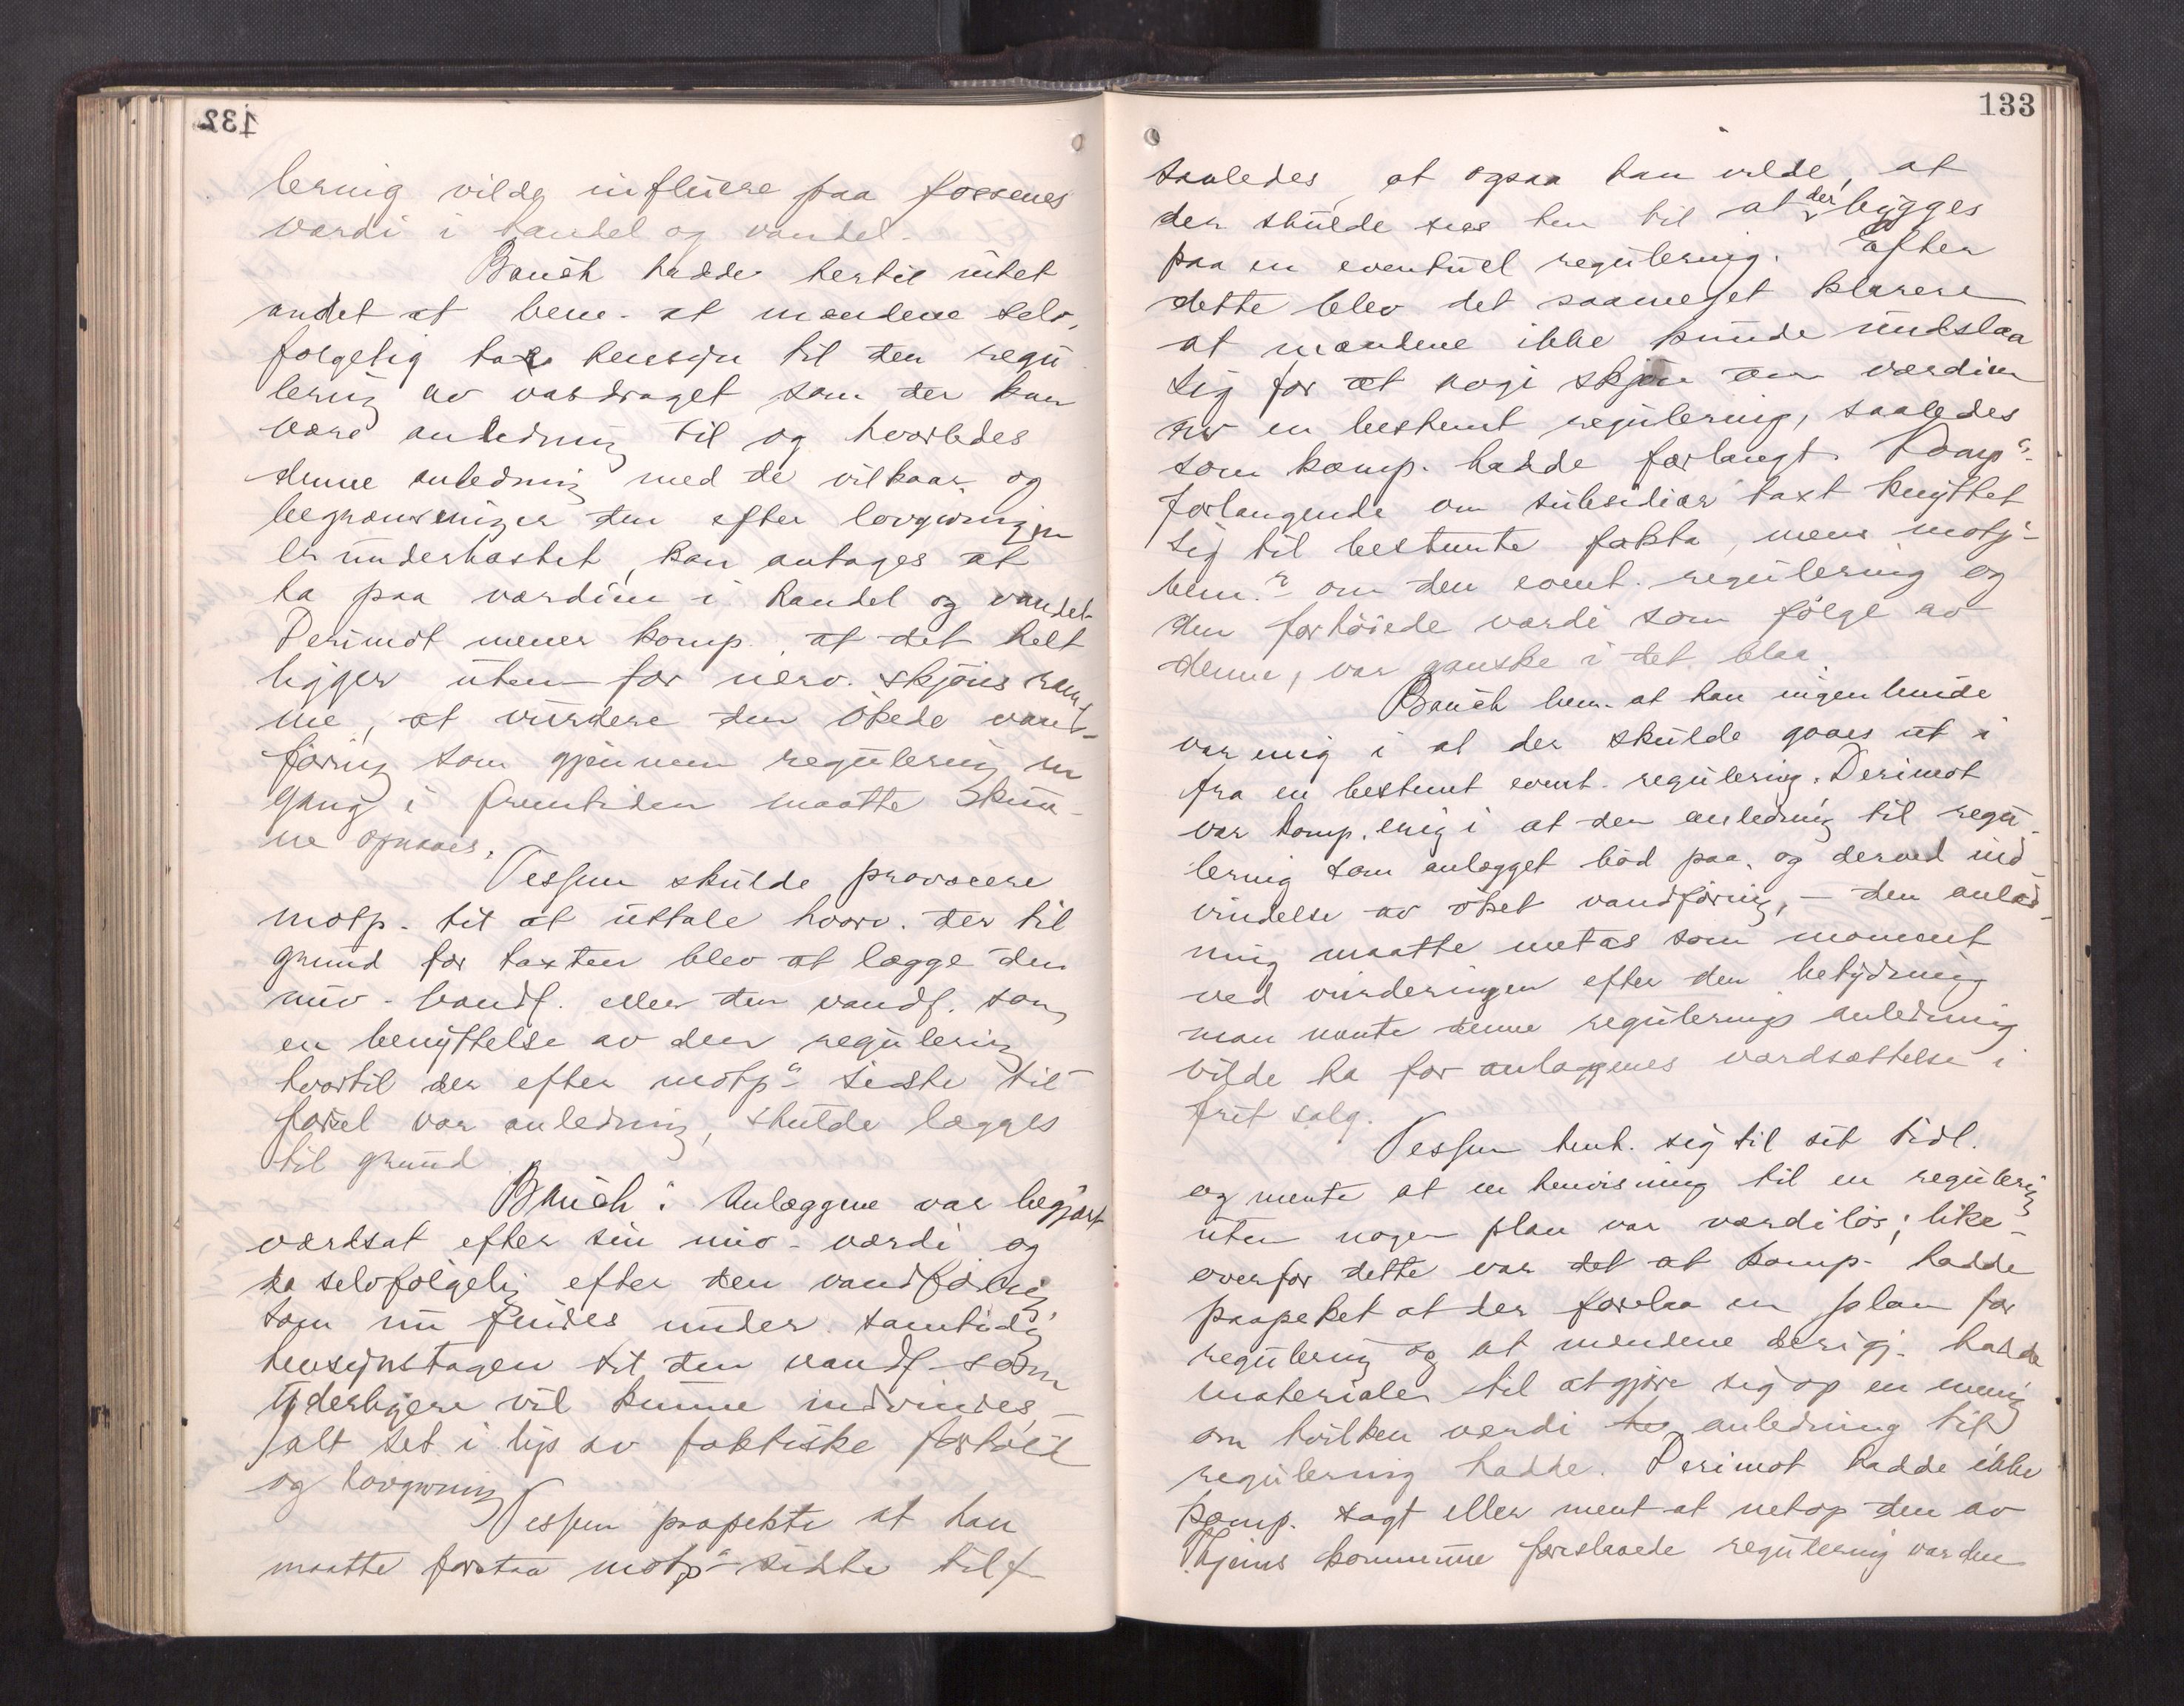 132
lering vilde influere paa fossenes
værdi i handel og vandel.
Bauck hadde hertil intet
andet at bem. at mændene selv-
følgelig tar hensyn til den regu
lering av vasdraget som der kan
være anledning til og hvorledes
denne anledning med de vilkaar og
begrænsninger den efter lovgivningen
er underkastet, kan antages at
ha paa værdien i handel og vandel.
Derimot mener komp. at det helt
ligger uten for nærv. skjøns ram-
me, at vurdere den økede vand-
føring som gjennem regulering en
gang i fremtiden maatte kun-
ne opnaaes.
Tessem skulde provocere
motp. til at uttale hvorv. der til
grund for taxten blev at lægge den
nuv. vandf. eller den vandf. som
en benyttelse av den regulering
hvortil der efter motp's sidste til-
førsel var anledning, skulde lægges
til grund
Bauck: Anlæggene var begjært
værdsat efter sin nuv. værdi og
da selvfølgelig efter den vandføring
som nu findes under samtidig
hensyntagen til den vandf. som
yderligere vil kunne indvindes,
alt set i lys av faktiske forhold
og lovgivning
Tessem paapekte at han
maatte forstaa motp's sidste tilf.
133
saaledes, at ogsaa han vilde, at
der skulde sees hen til at der bygges
paa en eventuel regulering. Efter
dette blev det saameget klarere
at mændene ikke kunde undslaa
sig for at avgi skjøn om værdien
av en bestemt regulering, saaledes
som komp. hadde forlangt. Komp's
forlangende om subsidiær taxt knyttet
sig til bestemte fakta, mens motp's
bem.r om den event. regulering og
den forhøiede værdi som følge av
denne, var ganske i det blaa.
Bauck bem. at han ingenlunde
var enig i at der skulde gaaes ut i
fra en bestemt event. regulering. Derimot
var komp. enig i at den anledning til regu-
lering som anlægget bød paa, og derved ind-
vindelse av øket vandføring, – den anled-
ning maatte metas som moment
ved vurderingen efter den betydning
man mente denne regulerings anledning
vilde ha for anlæggenes værdsættelse i
frit salg.
Tessem henh. sig til sit tidl.
og mente at en henvisning til en regulering
uten nogen plan var værdiløs; like-
overfor dette var det at komp. hadde
paapeket at der forelaa en plan for
regulering og at mændene derigj. hadde
materialer til at gjøre sig op en mening
om hvilken værdi anledning til
regulering hadde. Derimot hadde ikke
komp. sagt eller ment at netop den av
Thjems kommune foreslaaede regulering var den